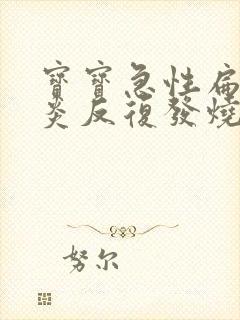 寶寶急性扁
炎反復發燒
努尔